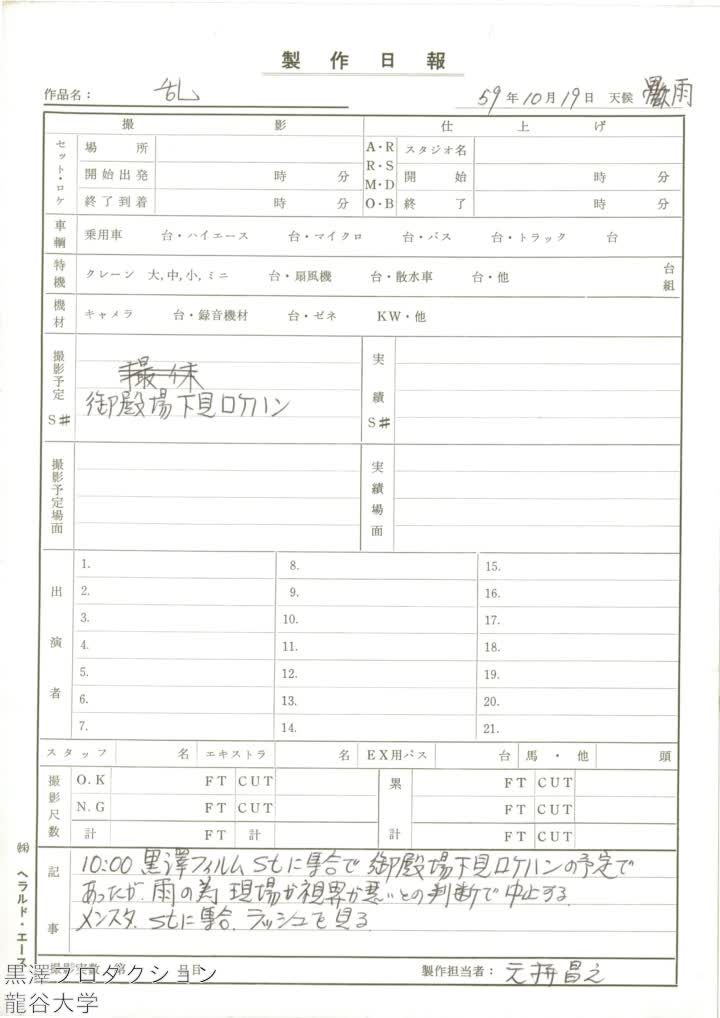 製作日報
作品名： 乱
59年10月19日 天候 雨
撮影 仕上げ
セット・ロケ 場所 A・R スタジオ名
開始出発 時 分 R・S 開始 時 分
M・D
終了到着 時 分 O・B 終了 時 分
車輌 乗用車 台・ハイエース 台・マイクロ 台・バス 台・トラック 台
特機 クレーン 大,中,小,ミニ 台・扇風機 台・散水車 台・他 台組
機材 キャメラ 台・録音機材 台・ゼネ KW・他
撮影予定 S# 実績 S#
撮休
御殿場下見ロケハン
撮影予定場面 実績場面
出演者
1. 8. 15.
2. 9. 16.
3. 10. 17.
4. 11. 18.
5. 12. 19.
6. 13. 20.
7. 14. 21.
スタッフ 名 エキストラ 名 EX用バス 台 馬・他 頭
撮影尺数 O.K FT CUT 累計 FT CUT
N.G FT CUT FT CUT
計 FT 計 FT CUT
記事
10:00 黒澤フィルムStに集合で御殿場下見ロケハンの予定で
あったが、雨の為 現場が視界が悪いとの判断で中止する。
メンスタ. Stに集合. ラッシュを見る
撮影実数 第 日目 製作担当者： 昌之
㈱ ヘラルド・エース
黒澤プロダクション
龍谷大学